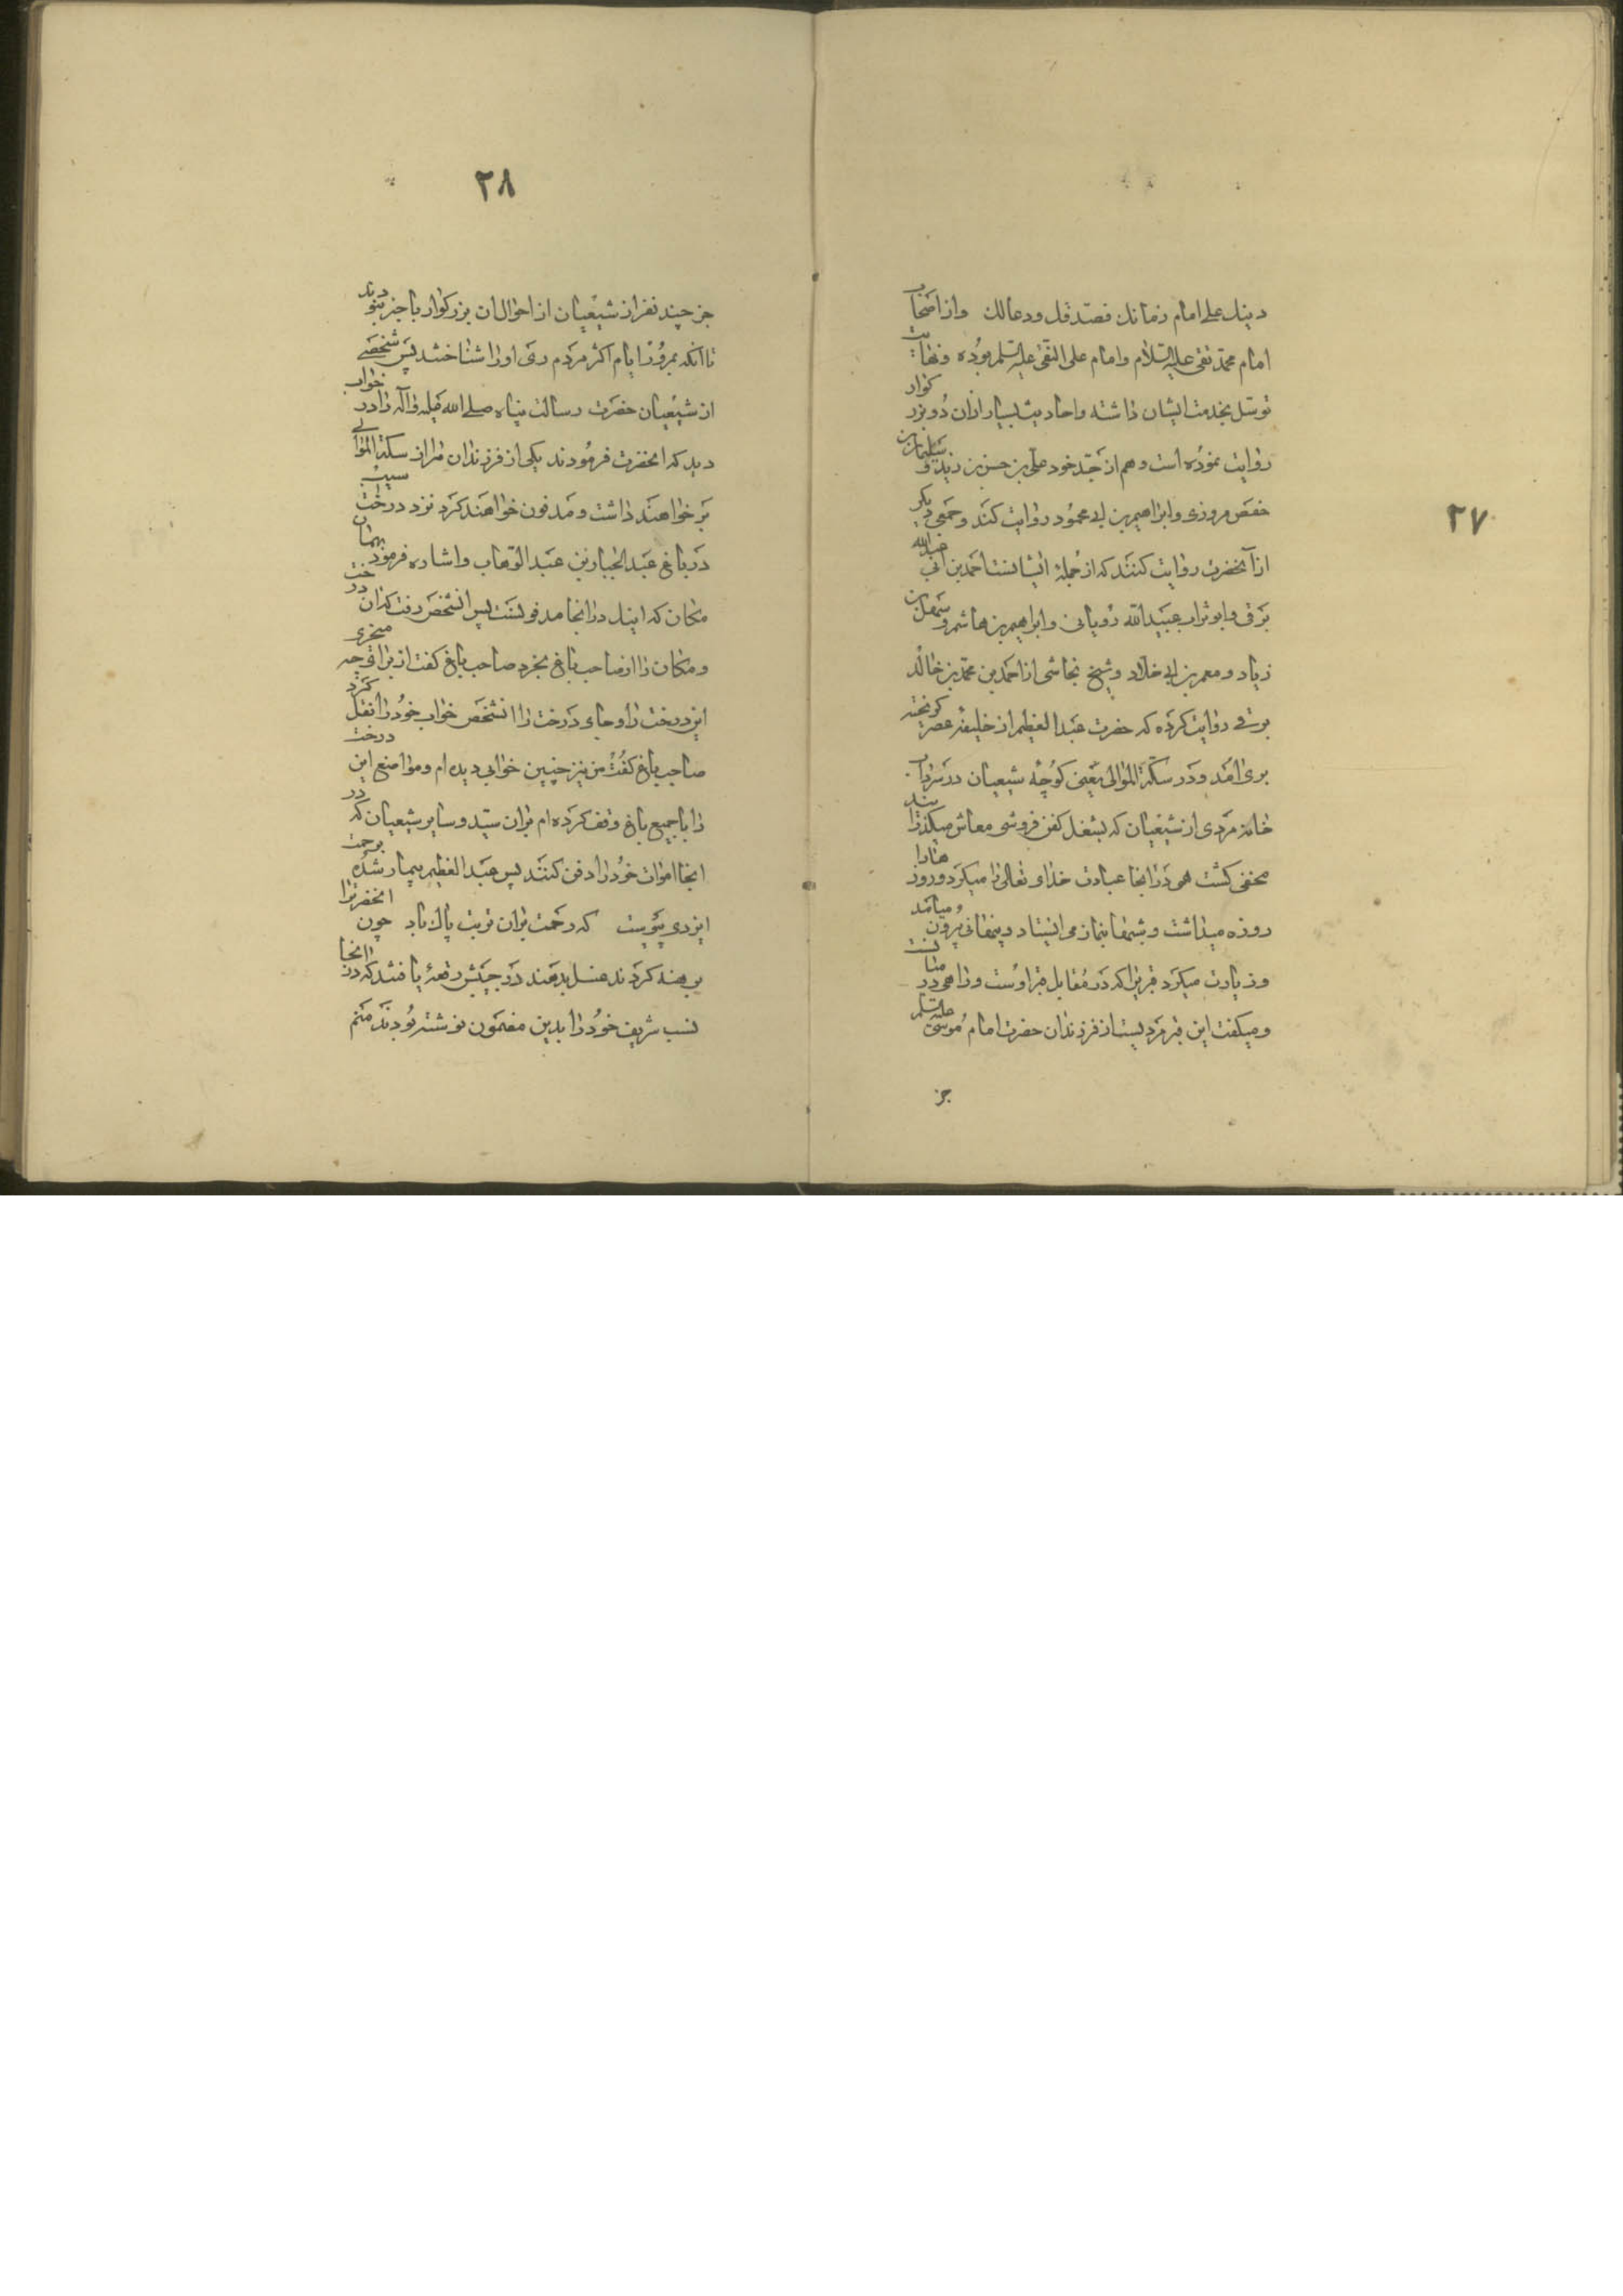 ۲۷
دینك علی امام زمانك فصدقك ودعالك واز اصحاب
امام محمد تقی علیه السلام وامام علی النقی علیه السلم بوده ونهایت
توسل بخدمت ایشان داشته واحادیث بسیار ازان دو بزرکوار
روایت نموده است وهم از جد خود علی بن حسن بن زید و سلیمان بن
حفص مروزی وابراهیم بن ابی محمود روایت کند وجمعی دیکر
از آنحضرت روایت کنند که از جمله ایشانست احمد بن ابی عبدالله
برقی وابوتراب عبیدالله رویانی وابراهیم بن هاشم وسهل بن
زیاد ومعمر بن ابی خلاد وشیخ نجاشی از احمد بن محمد بن خالد
برقی روایت کرده که حضرت عبدالعظیم از خلیفه عصر کریخته
بری امد ودر سکة الموالی یعنی کوچه شیعیان در سرداب
خانه مردی از شیعیان که بشغل کفن فروشی معاش میکذرانید
مخفی کشت همی در انجا عبادت خدای تعالی را میکرد وروز هارا
روزه میداشت وشبها بنماز می ایستاد وپنهانی بیرون میامد
وزیارت میکرد قبریرا که در مقابل قبر اوست وراهی در میانست
ومیکفت این قبر مردیست از فرزندان حضرت امام موسی علیه السلم
جز
۲۸
جز چند نفر از شیعیان از احوال ان بزرکوار باخبر نبودند
تا انکه بمرور ایام اکثر مردم ری اورا شناختند پس شخصی
از شیعیان حضرت رسالت پناه صلی الله علیه وآله را در خواب
دید که انحضرت فرمودند یکی از فرزندان مرا از سکة الموالی
بر خواهند داشت ومدفون خواهند کرد نزد درخت سیب
در باغ عبدالجبار بن عبدالوهاب واشاره فرمود بهمان
مکان که اینك در انجا مدفونست پس انشخص رفت که ان درخت
ومکان را از صاحب باغ بخرد صاحب باغ کفت از برای چه میخری
این درخت را وجای درخت را انشخص خواب خود را نقل کرد
صاحب باغ کفت من نیز چنین خوابی دیده ام وموضع این درخت
را با جمیع باغ وقف کرده ام بران سید وسایر شیعیان که در
انجا اموات خود را دفن کنند پس عبدالعظیم بیمار شده برحمت
ایزدی پیوست که رحمت بران تربت پاك باد چون انحضرترا
برهنه کردند غسل بدهند در جیبش رقعهٔ یافتند که در انجا
نسب شریف خود را بدین مضمون نوشته بودند منم